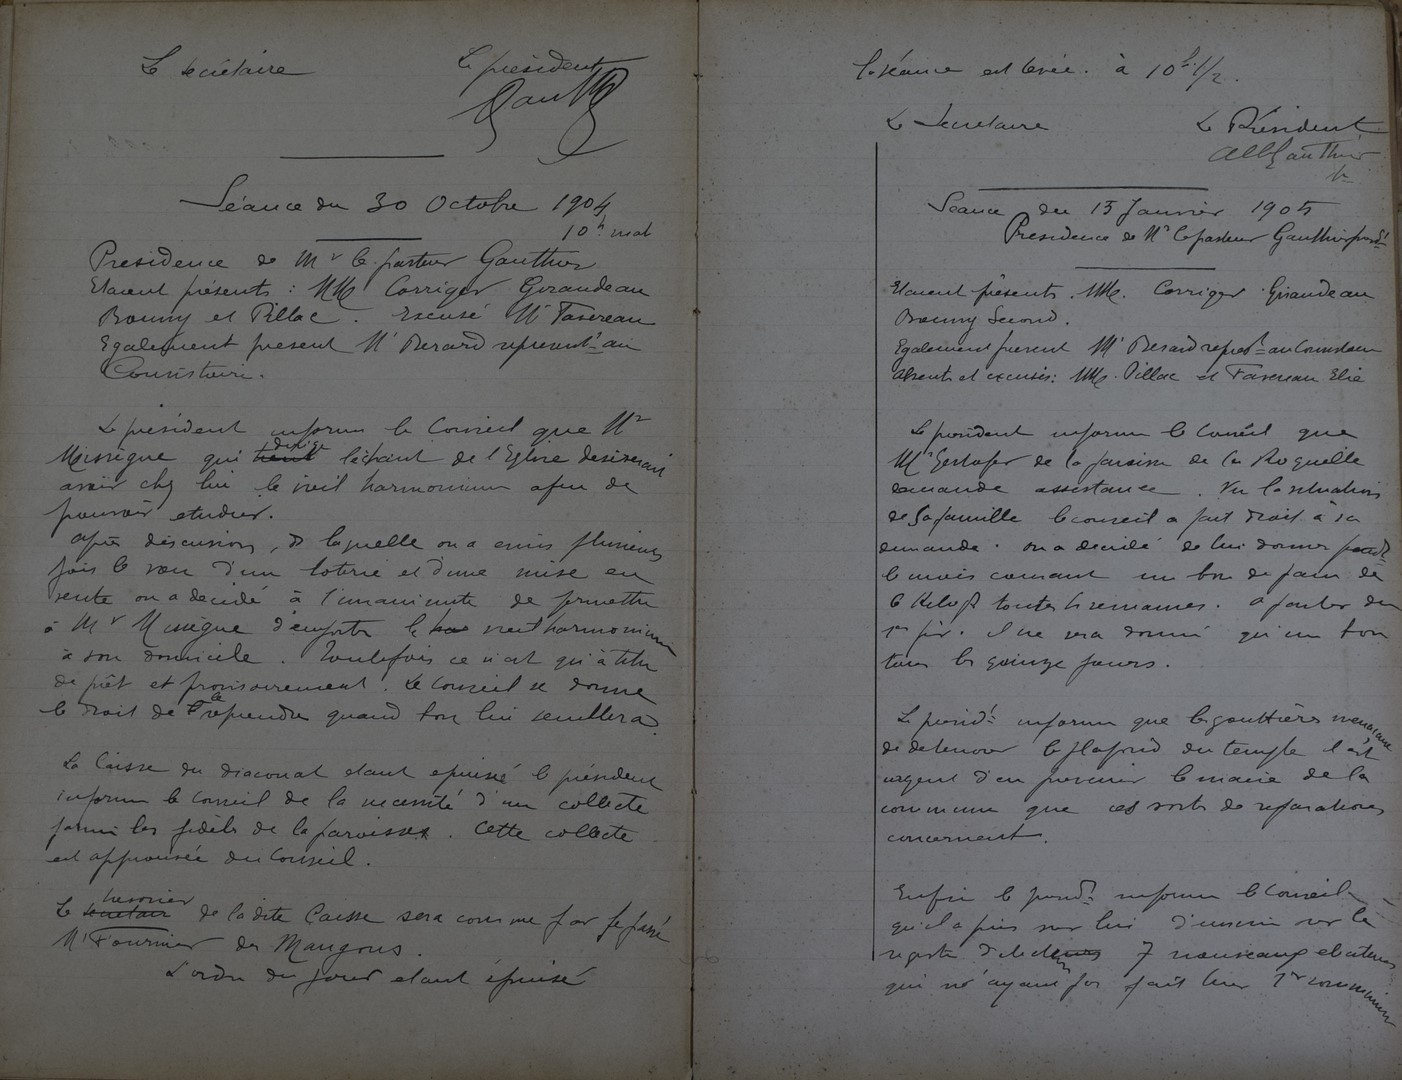 Le secrétaire
Le président
Gauthier
Séance du 30 Octobre 1904
10h mat
Presidence de Mr le pasteur Gauthier
Etaient présents : MM Corriger Girandeau
Bouny et Pillac. Excusé Mr Favereau
Egalement present Mr Berard represent.t au
Consistoire.
Le président informe le Conseil que Mr
Missègue qui tient dirige le chant de l'Eglise desirerait
avoir chez lui le vieil harmonium afin de
pouvoir etudier.
après discussion, de laquelle on a emis plusieurs
fois le voeu d'une loterie et d'une mise en
vente on a decidé à l'unanimité de permettre
à Mr Missègue d'emporter le vieil harmonium
à son domicile. Toutefois ce n'est qu'à titre
de prêt et provisoirement. Le Conseil se donne
le droit de le reprendre quand bon lui semblera.
La Caisse du diaconat etant epuisée le président
informe le Conseil de la necessité d'une collecte
parmi les fidèles de la paroisse. Cette collecte
est approuvée du Conseil.
Le secretaire tresorier de la dite Caisse sera comme par le passé
Mr Fournier des Maugons.
L'ordre du jour etant épuisé
la séance est levée. à 10h 1/2.
Le Secretaire
Le Président
Gauthier
Seance du 15 Janvier 1905
Presidence de Mr le pasteur Gauthier presdt
Etaient présents. MM. Corriger Girandeau
Bouny Second.
Egalement present Mr Berard repres.t au Consistoire
Absents et excusés: MM. Pillac et Favereau Elie
Le president informe le Conseil que
Mr de la paroisse de la Roquelle
demande assistance. Vu la situation
de sa famille le conseil a fait droit à sa
demande. on a decidé de lui donner pendt
le mois courant un bon de pain de
6 Kilogs toutes les semaines. à partir du
1er fév. il ne sera donné qu'un bon
tous les quinze jours.
Le presidt informe que les gouttières menaçant
de deteriorer le plafond du temple il est
urgent d'en prevenir le maire de la
commune que ces sortes de reparations
concernent.
Enfin le presdt informe le Conseil
qu'il a pris sur lui d'inscrire sur le
registre d'electeurs 7 nouveaux electeurs
qui n'ayant pas fait leur 1re communion